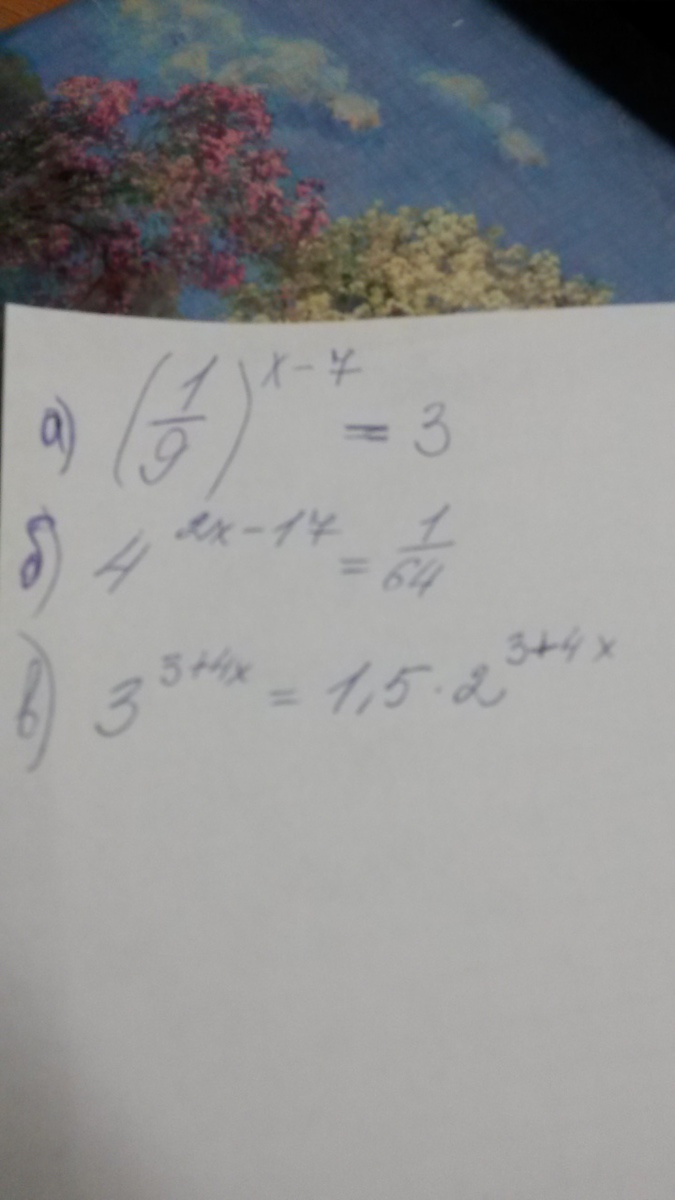 а) (1/9)^(x-7) = 3
б) 4^(2x-17) = 1/64
в) 3^(3+4x) = 1,5·2^(3+4x)